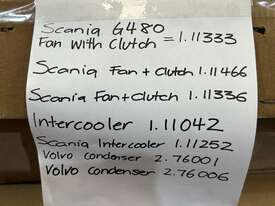 Scania G480
Fan With Clutch = 1.11333
Scania Fan + Clutch 1.11466
Scania Fan + Clutch 1.11336
Intercooler 1.11042
Scania Intercooler 1.11252
Volvo condenser 2.76001
Volvo condenser 2.76006